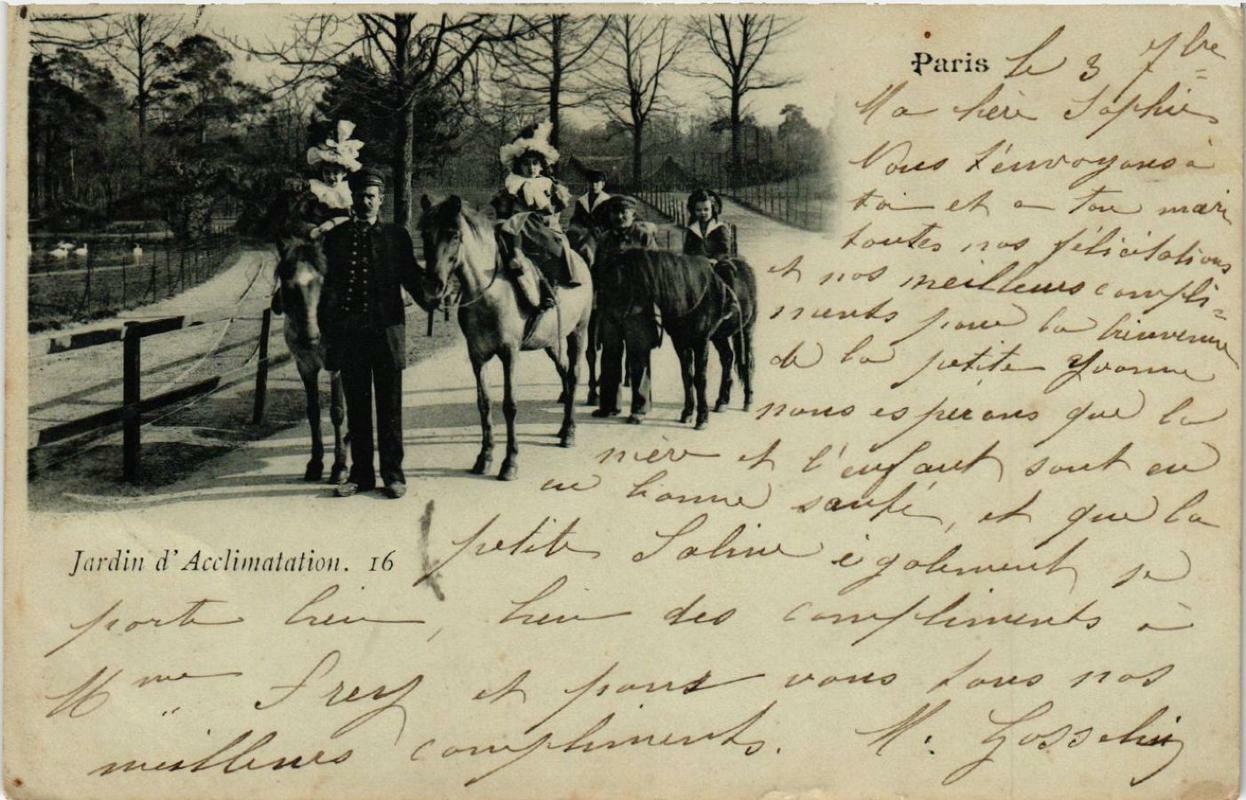 Paris le 3 7bre
Ma chère Sophie
Nous t'envoyons à
toi et a ton mari
toutes nos félicitations
et nos meilleurs compli=
ments pour la bienvenue
de la petite Yvonne
nous esperons que la
mère et l'enfant sont en
en bonne santé, et que la
petite Saline également se
porte bien, bien des compliments à
Mme Frey et pour vous tous nos
meilleurs compliments. M. Gosselin
Jardin d'Acclimatation. 16